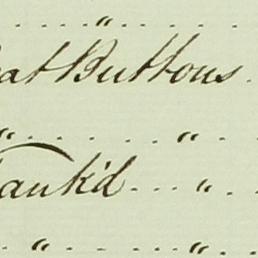 "
at Buttons
" "
ank'd "
" "